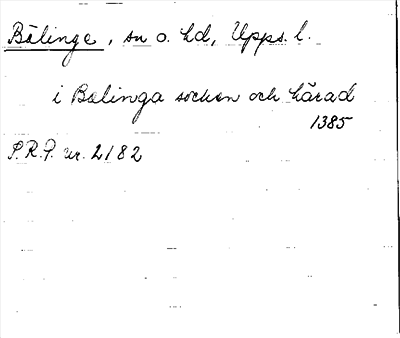 Bälinge, sn o. hd, Upps. l.
i Balinga socken och härad
1385
S.R.P. nr. 2182